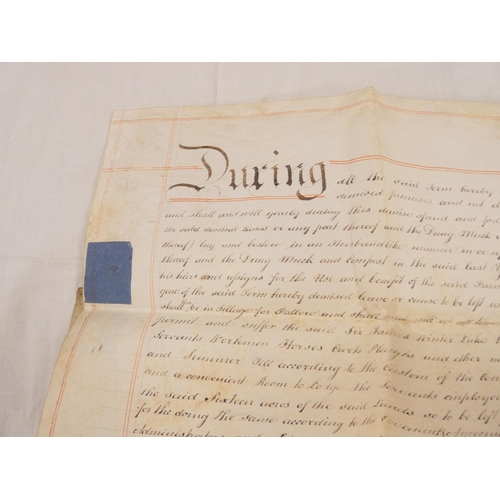 During all the said Term hereby
demised premises and not
and shall and will yearly during this demise spend and
the said demised Lands or any part thereof and the Dung Muck
thereof lay and bestow in an Husbandlike manner in or
thereof and the Dung Muck and Compost in the said last
his heirs and assigns for the Use and benefit of the said
year of the said Term hereby demised leave or cause to be left
shall be in Tillage for Fallow and shall
permit and suffer the said Sir James Winter Lake
Servants Workmen Horses Carts Ploughs and other
and Summer Till according to the Custom of the
and a convenient Room to Lodge the Servants employed
the said Sixteen acres of the said Lands so to be left
for the doing the same according to the
Administrators and